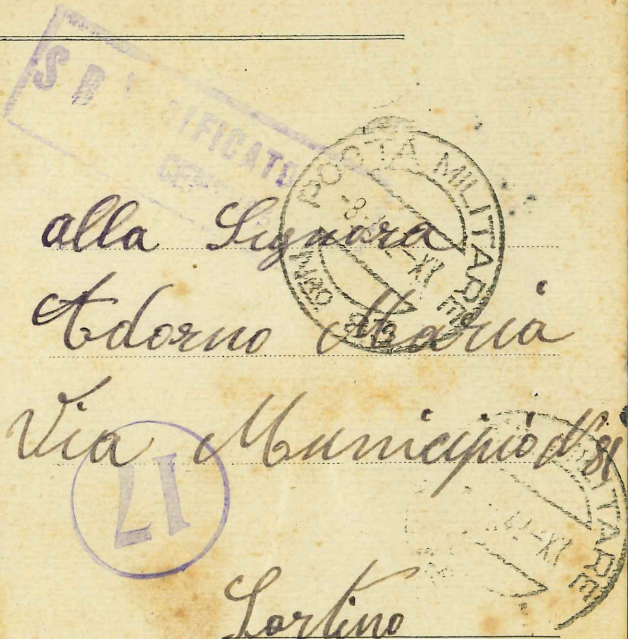 VERIFICATO
POSTA MILITARE
alla Signora
Adorno Maria
Via Municipio N° 81
17
MILITARE
Sortino